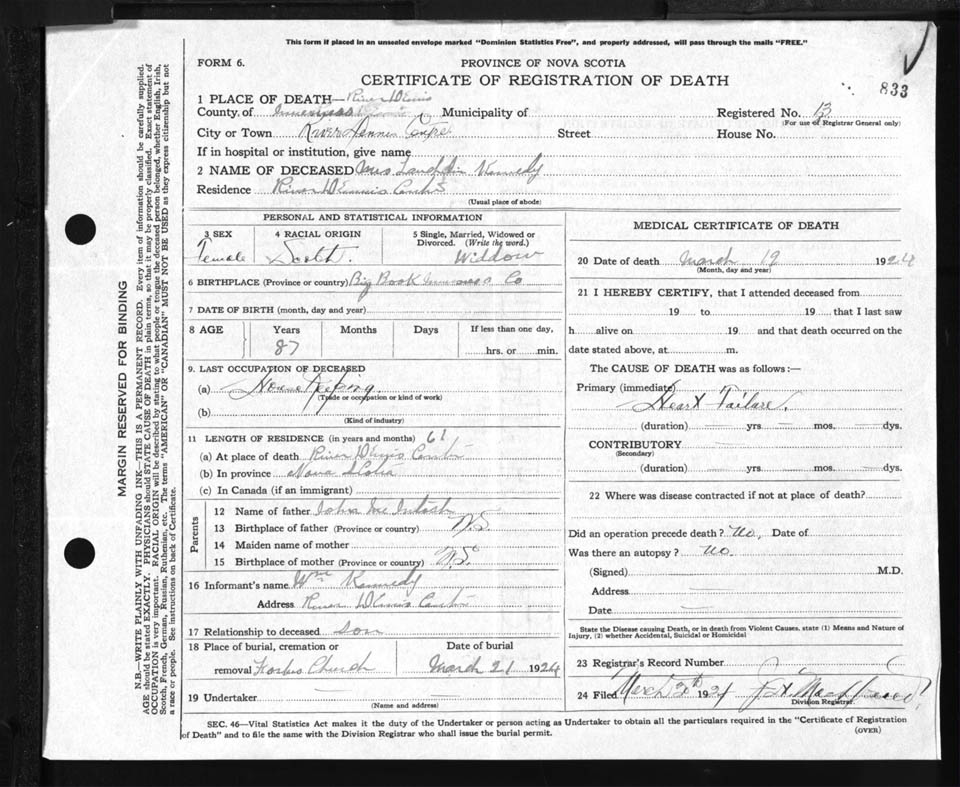 This form if placed in an unsealed envelope marked "Dominion Statistics Free", and properly addressed, will pass through the mails "FREE."
FORM 6.
PROVINCE OF NOVA SCOTIA
CERTIFICATE OF REGISTRATION OF DEATH
833
1 PLACE OF DEATH— River Dennis
County of Inverness Municipality of Registered No. 13
(For use of Registrar General only)
City or Town River Dennis Centre Street House No.
If in hospital or institution, give name
2 NAME OF DECEASED Mrs Lauchlin Kennedy
Residence River Dennis Centre
(Usual place of abode)
PERSONAL AND STATISTICAL INFORMATION
3 SEX 4 RACIAL ORIGIN 5 Single, Married, Widowed or
Divorced. (Write the word.)
Female Scotch. Widow
6 BIRTHPLACE (Province or country) Big Brook Inverness Co
7 DATE OF BIRTH (month, day and year)
8 AGE Years Months Days If less than one day,
87 hrs. or min.
9. LAST OCCUPATION OF DECEASED
(a) House Keeping.
(Trade or occupation or kind of work)
(b)
(Kind of industry)
11 LENGTH OF RESIDENCE (in years and months) 61
(a) At place of death River Dennis Centre
(b) In province Nova Scotia
(c) In Canada (if an immigrant)
Parents
12 Name of father John Mc Intosh
13 Birthplace of father (Province or country) N.S.
14 Maiden name of mother
15 Birthplace of mother (Province or country) N.S.
16 Informant's name Wm Kennedy
Address River Dennis Centre
17 Relationship to deceased son
18 Place of burial, cremation or Date of burial
removal Forks Church March 21 1924
19 Undertaker
(Name and address)
MEDICAL CERTIFICATE OF DEATH
20 Date of death March 19 1924
(Month, day and year)
21 I HEREBY CERTIFY, that I attended deceased from
19 to 19 that I last saw
h alive on 19 and that death occurred on the
date stated above, at m.
The CAUSE OF DEATH was as follows:—
Primary (immediate)
Heart Failure.
(duration) yrs mos. dys.
CONTRIBUTORY
(Secondary)
(duration) yrs. mos. dys.
22 Where was disease contracted if not at place of death?
Did an operation precede death? No, Date of
Was there an autopsy? No.
(Signed) M.D.
Address
Date
State the Disease causing Death, or in death from Violent Causes, state (1) Means and Nature of
Injury, (2) whether Accidental, Suicidal or Homicidal
23 Registrar's Record Number
24 Filed March 20th 1924
Division Registrar.
SEC. 46—Vital Statistics Act makes it the duty of the Undertaker or person acting as Undertaker to obtain all the particulars required in the "Certificate of Registration
of Death" and to file the same with the Division Registrar who shall issue the burial permit.
(OVER)
MARGIN RESERVED FOR BINDING
N.B.—WRITE PLAINLY WITH UNFADING INK—THIS IS A PERMANENT RECORD. Every item of information should be carefully supplied.
AGE should be stated EXACTLY. PHYSICIANS should STATE CAUSE OF DEATH in plain terms, so that it may be properly classified. Exact statement of
OCCUPATION is very important. RACIAL ORIGIN will be described by stating to what people or tongue the deceased person belonged, whether English, Irish,
Scotch, French, German, Russian, Ruthenian, etc. The terms "AMERICAN" OR "CANADIAN" MUST NOT BE USED as they express citizenship but not
a race or people. See instructions on back of Certificate.